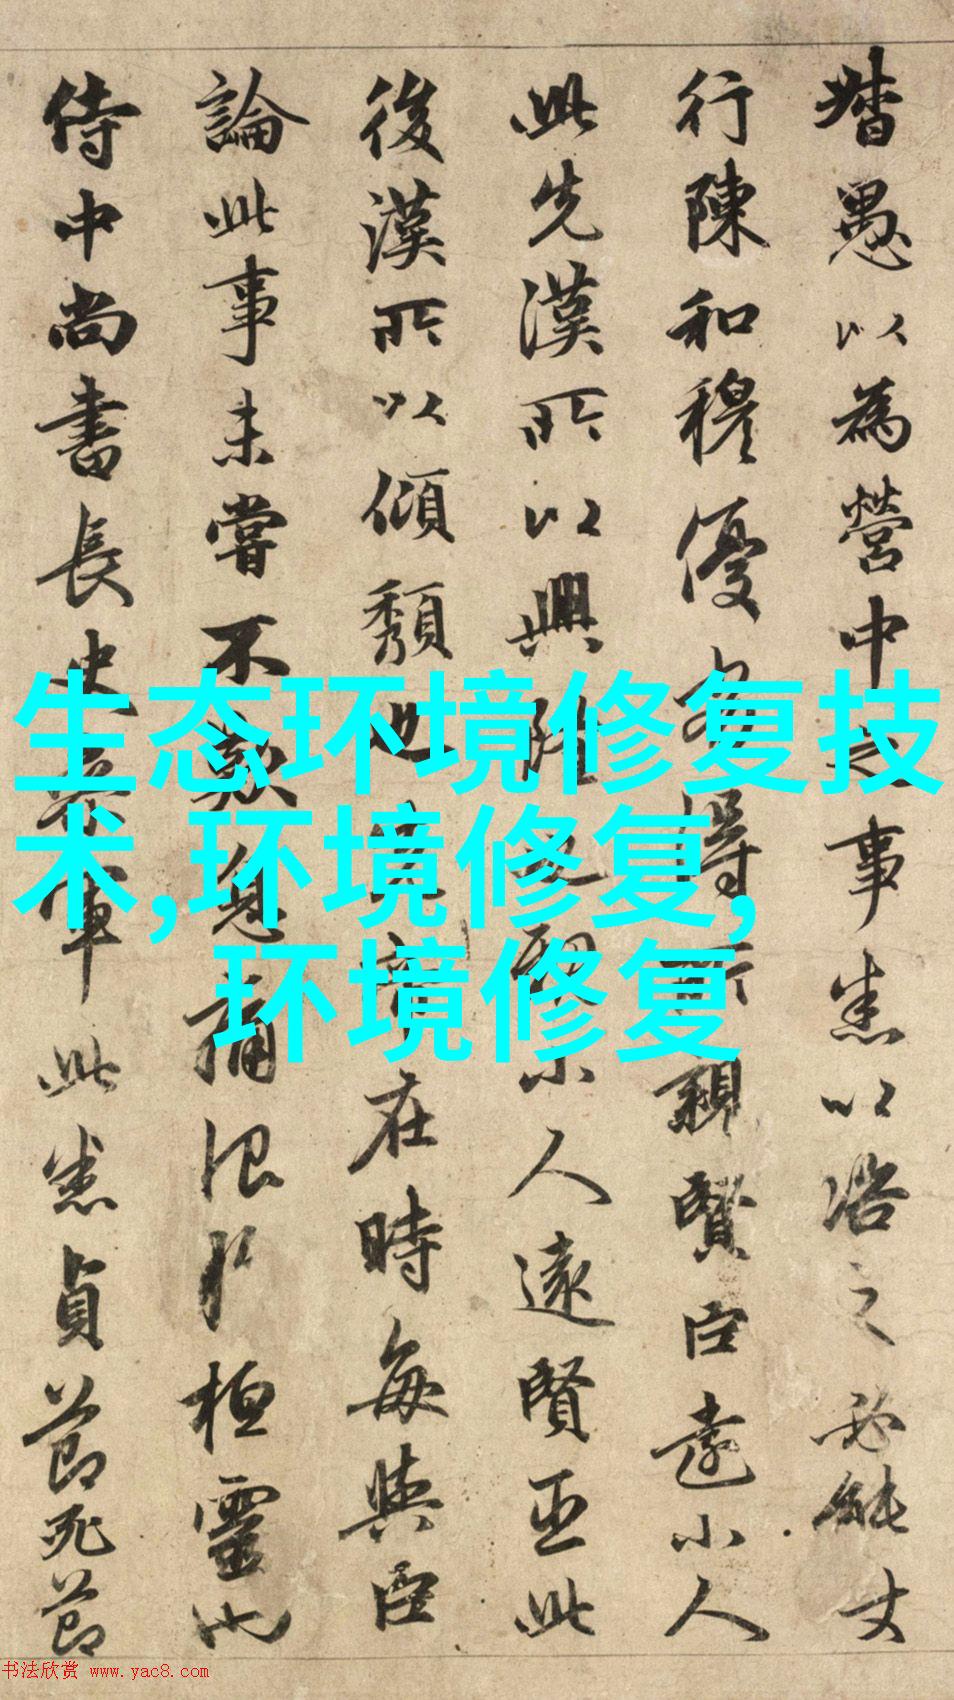 督愚以為營中之事悉以之必能
行陳和穆優劣得所親賢臣遠小人
此先漢所以興隆也親小人遠賢臣此
後漢所以傾頹也先帝在時每與臣
論此事未嘗不歎息痛恨於桓靈也
侍中尚書長史參軍此悉貞節死節
生态环境修复技
术,环境修复,
环境修复
书法欣赏 www.yac8.com